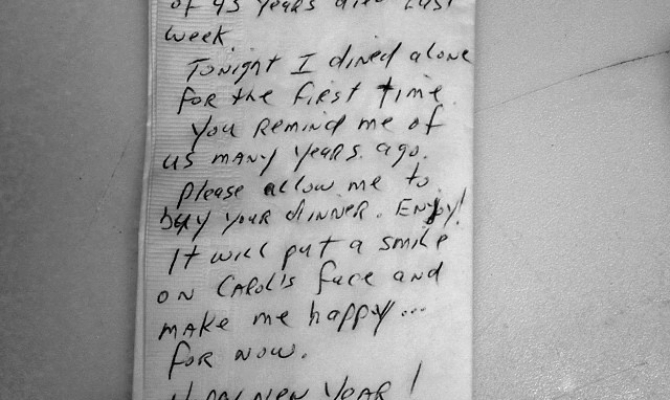 of 43 years died last
week.
Tonight I dined alone
for the first time.
You remind me of
us many years ago.
Please allow me to
buy your dinner. Enjoy!
It will put a smile
on Carol's face and
make me happy...
for now.
New Year!